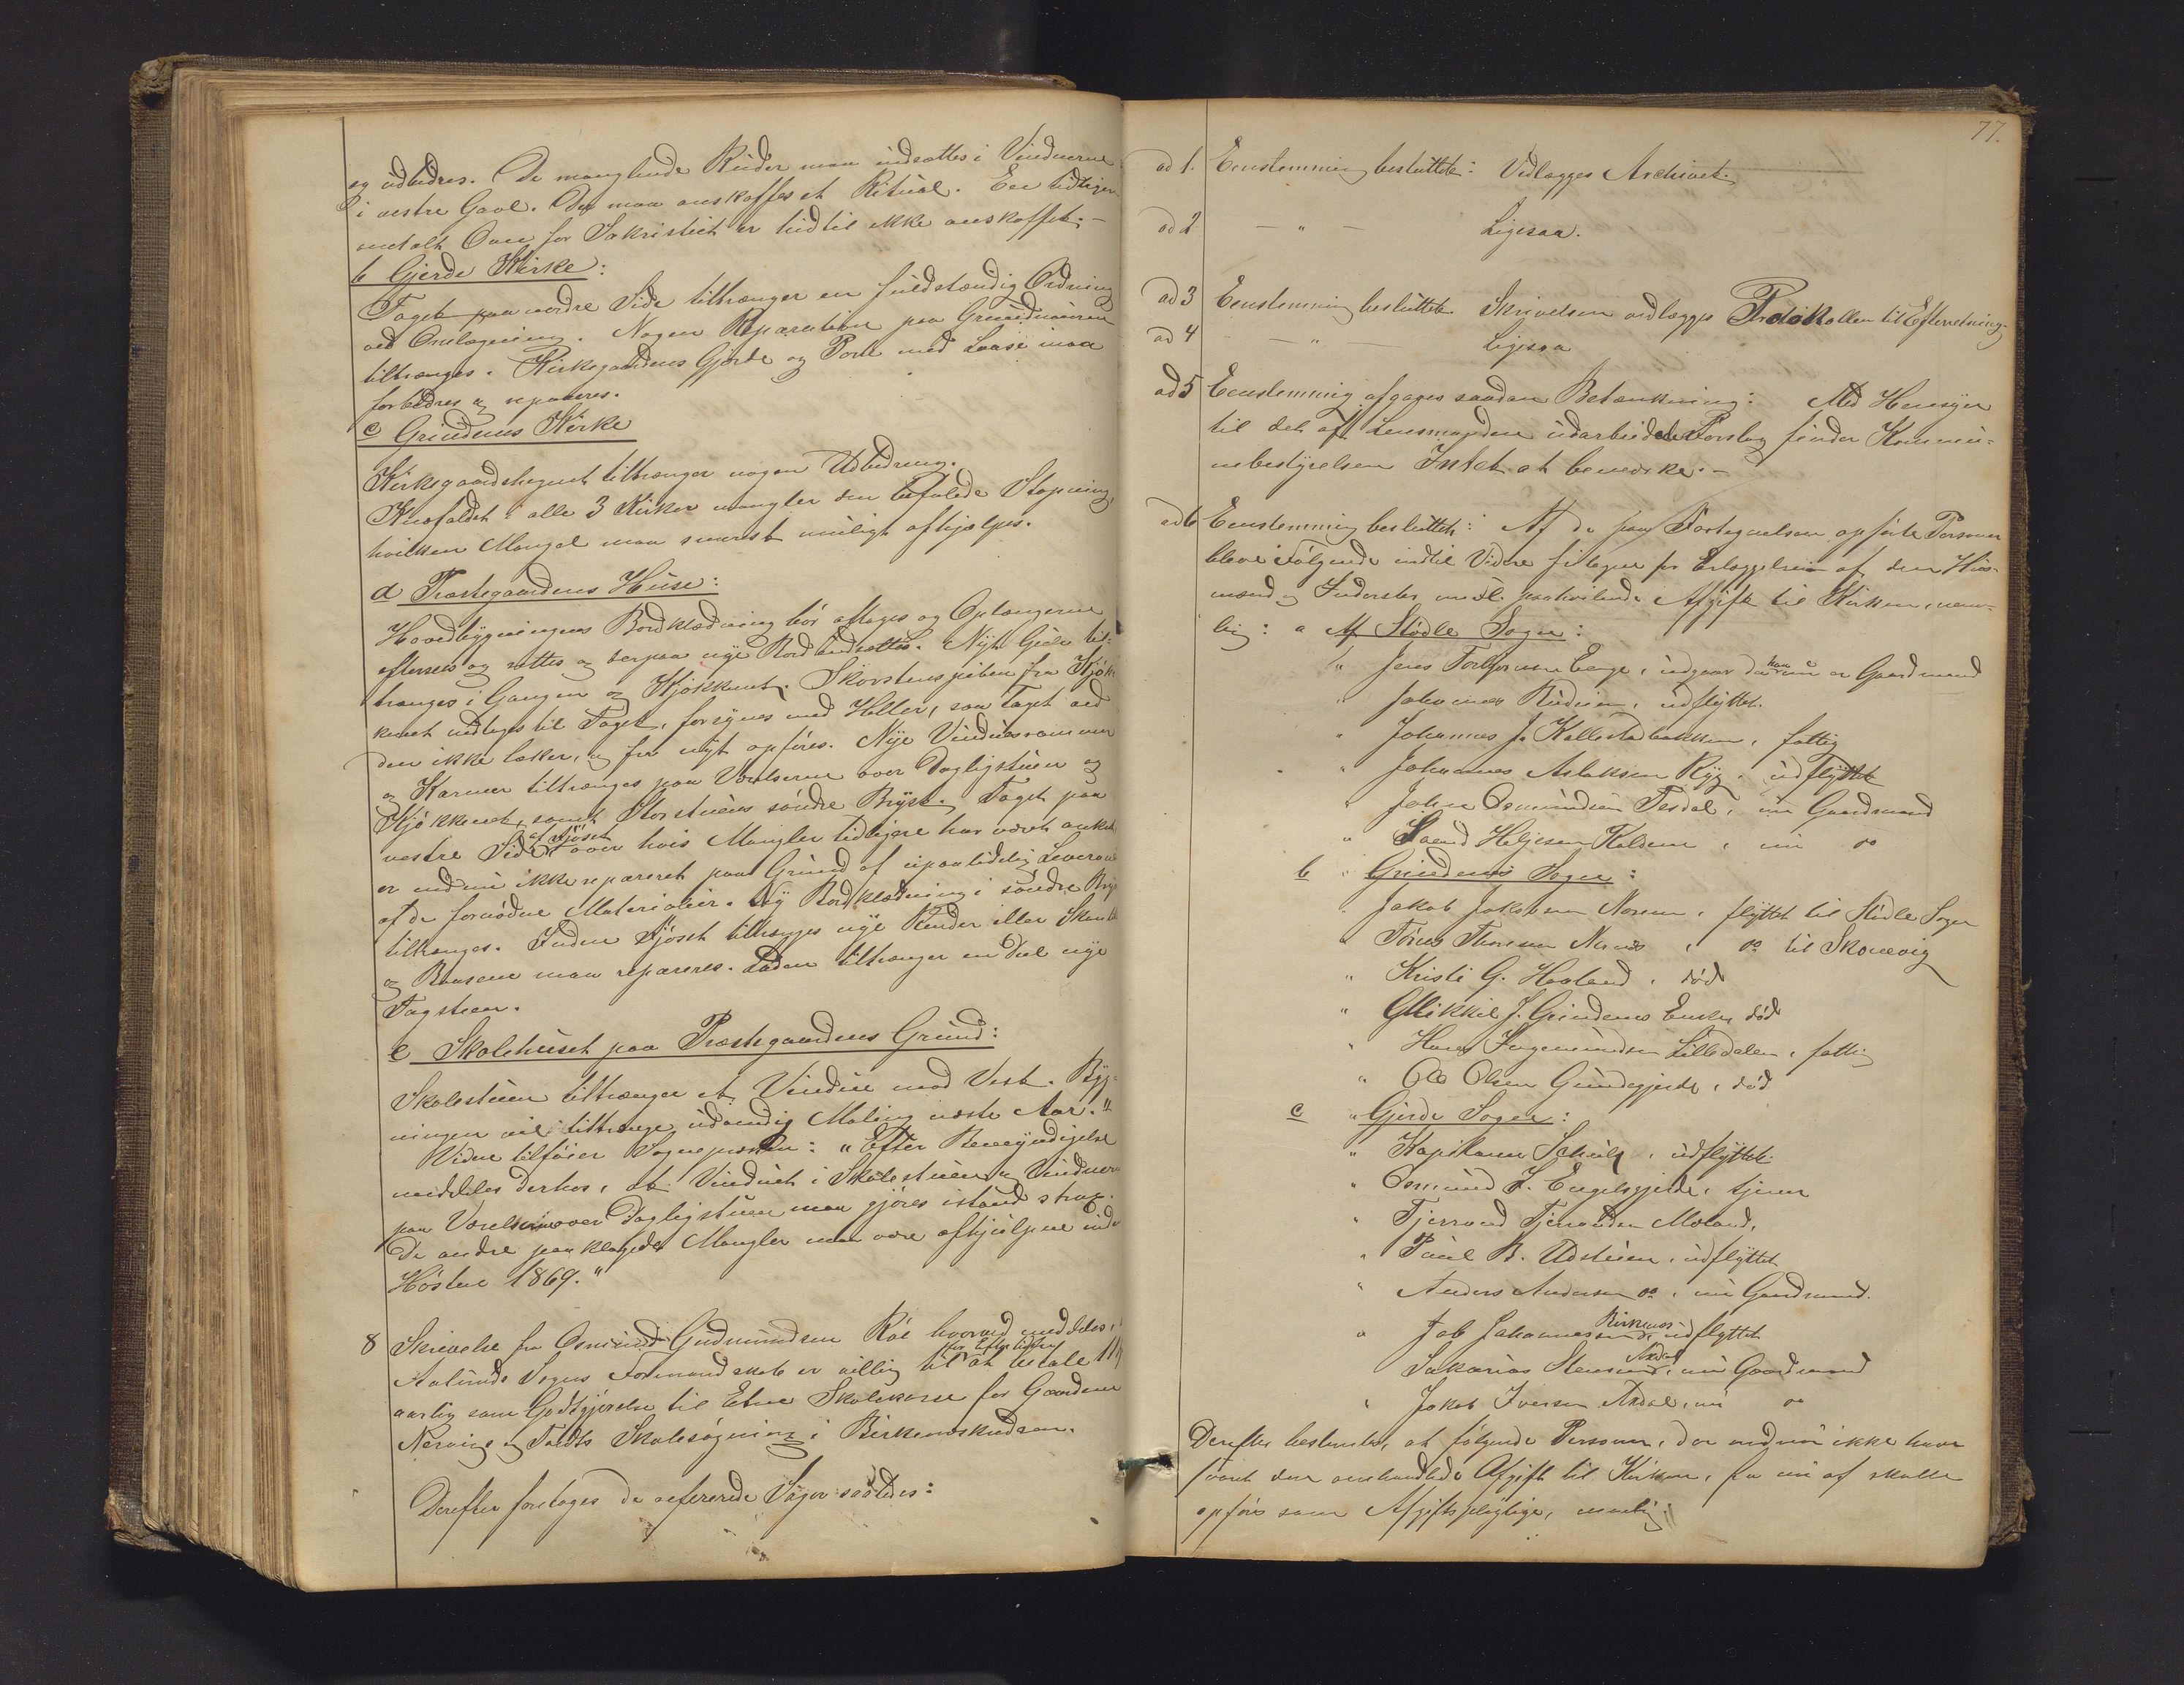 og udbedres. De manglende Ruder maa indsættes i Vinduerne
i vestre Gavl. Der maa anskaffes et Ritual. En tidligere
omtalt Ovn for Sakristiet er hidtil ikke anskaffet. -
b Gjerde Kirke:
Taget paa nordre Side tiltrænger en fuldstændig Ordning
ved Omlægning. Nogen Reparation paa Grundmuren
tiltrænges. Kirkegaardens Gjerde og Port med Laase maa
forbedres og repareres.
c Grindems Kirke
Kirkegaardshegnet tiltrænger nogen Udbedring.
Knæfaldet i alle 3 Kirker mangler den befalede Stopning,
hvilken Mangel maa snarest muligt afhjælpes.
d Præstegaardens Huse:
Hovedbygningens Bordklædning bør aftages og Oplængerne
eftersees og rettes og derpaa nye Bord indsættes. Nyt Gulv til-
trænges i Gangen og Kjøkkenet. Skorstenspiben fra Kjøk-
kenet nedtages til Taget, forsynes med Heller, saa Taget ved
den ikke lækker, og fra nyt opføres. Nye Vinduesrammer
og Karmer tiltrænges paa Værelserne over Dagligstuen og
Kjøkkenet, samt Storstuens søndre Bryst. Taget paa
vestre Side af Fjøset over hvis Mangler tidligere har været anket
er endnu ikke repareret paa Grund af upaalidelig Leverance
af de fornødne Materialier. Ny Bordklædning i søndre Bryst
tiltrænges. Inden Fjøset tiltrænges nye Render eller
og Baasene maa repareres. Laden tiltrænger en Deel nye
Tagsteen.
e Skolehuset paa Præstegaardens Grund:
Skolestuen tiltrænger et Vindue mod Vest. Byg-
ningen vil tiltrænge udvendig Maling næste Aar."
Videre tilføier Sognepræsten: "Efter Bemyndigelse
meddeles derhos, at Vinduet i Skolestuen og Vinduerne
paa Værelserne over Dagligstuen maa gjøres istand strax.
De andre paaklagede Mangler maa være afhjulpne inden
Høsten 1869."
8 Skrivelse fra Osmund Gudmundsen Røe hvorved meddeles, at
Aalunds Sogns Formandskab er villig til for Eftertiden at betale
aarlig som Godtgjørelse til Etne Skolekasse for Gaardene
Nervigs og Tofts Skolesøgning i Birkenæskredsen.
Derefter foretoges de refererede Sager saaledes:
77.
ad 1. Eenstemmig besluttet: Vedlægges Archivet.
ad 2 - " - Ligesaa.
ad 3 Eenstemmig besluttet Skrivelsen vedlægges Protokollen til Efterretning.
ad 4 - " - Ligesaa
ad 5 Eenstemmig afgaves saadan Betænkning: Med Hensyn
til det af Lensmanden udarbeidede Forslag finder Kommu-
nebestyrelsen Intet at bemærke. -
ad 6 Eenstemmig besluttet: Af de paa Fortegnelsen opførte Personer
bleve Følgende indtil Videre fritagne for Erlæggelsen af den Hus-
mænd og Inderster m. fl. paahvilende Afgift til Kirken, nem-
lig: a Af Stødle Sogn:
" Jens Torbjørnsen Enge, udgaar da han nu er Gaardmand
" Johannes Rudien, udflyttet.
" Johannes J. Kallestadbakken, fattig
" Johannes Aslaksen Ryg, udflyttet
" John Osmundsen Tesdal, nu Gaardmand
" Svend Heljesen Kalden, nu do
b " Grindems Sogn:
" Jakob Jakobsen Norem, flyttet til Stødle Sogn
" Tørres Thoresen Nernæs, do til Skonevig
" Kristi G. Haaland, død
" Mikkil J. Grindems Enke, død
" Hans Ingemundsen Lilledalen, fattig
" Ole Olsen Grindegjerde, død
c " Gjerde Sogn:
" Kapitaine Schulz, udflyttet.
" Osmund J. Engelsgjerde, tjener
" Tjerand Tjerandsen Moland,
" Paul B. Udstuen, udflyttet
" Anders Andersen do, nu Gaardmand.
" Job Johannessen Birkenæs, udflyttet
Sakarias Stensen Axdal, nu Gaardmand
" Jakob Iversen Axdal, nu do
Derefter bestemtes, at følgende Personer, der endnu ikke have
svaret den omhandlede Afgift til Kirken, fra nu af skulle
opføres som Afgiftspligtige, nemlig: